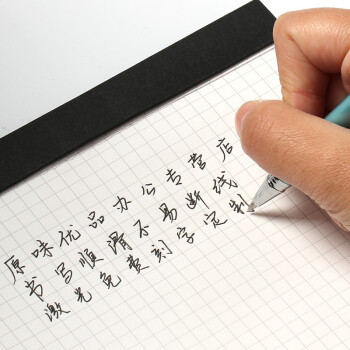 原味优品办公专营店
书写顺滑不易断线
激光免费刻字定制